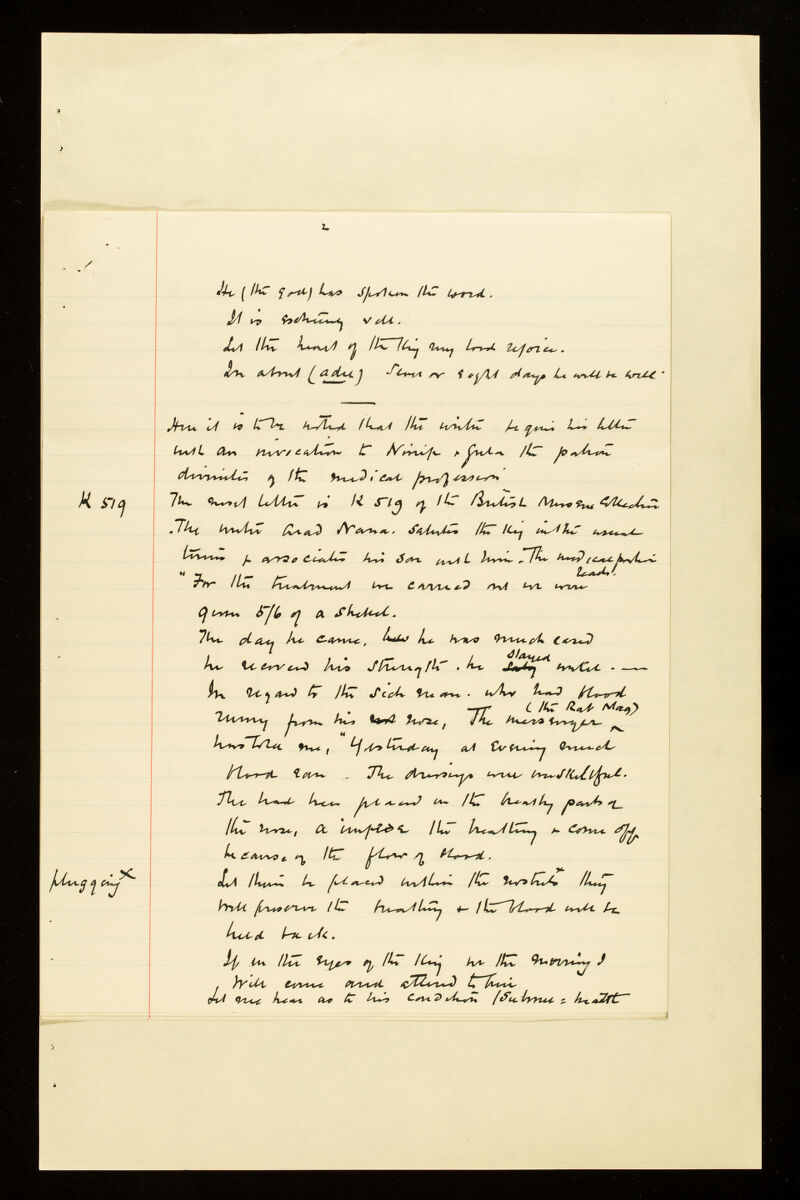 2
He (the god) has spoken the word.
It is extremely well.
Let the heart of the King my lord rejoice.
In about (adu) seven or eight days he will be well.
Here it is to be noted that the writer begins his letter
with an invocation to Ninip & Gula the patron
divinities of the medical profession
K 519
The next letter is K 519 of the British Museum Collection
. The writer Arad Nana. Salutes the King in the usual
terms & associates his son with him. The medical portion
reads.
"For the treatment we carried out we were
given 5/6 of a Shekel.
The day he came, he was much eased
he received his strength. he stayed until. —
In regard to the sick man. who had blood
(the Rab Mag)
runing from his nose, The messenger
has told me, "Yesterday at Evening much
blood ran. The dressings were unskillful.
The had been placed on the breathy parts of
the nose, a impede the breathing & come off
because of the flow of blood.
plugging x
Let them be placed within the nostrils x they
will preserve the breathing & the blood will be
held back.
If in the eyes of the King in the morning I
will come and attend to him
Let me hear as to his condition / = health